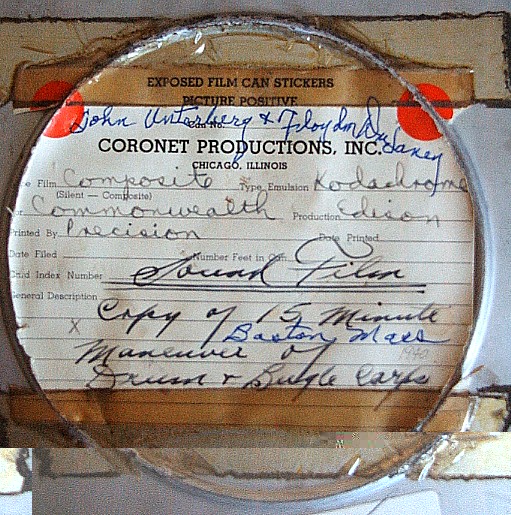 EXPOSED FILM CAN STICKERS
PICTURE POSITIVE
Can No.
John Unterberg & Floyd M Dulaney
CORONET PRODUCTIONS, INC.
CHICAGO, ILLINOIS
Film Composite Type Emulsion Kodachrome
(Silent — Composite)
Commonwealth Production Edison
Printed By Precision Date Printed
Date Filed Number Feet in Can
Card Index Number Sound Film
General Description
Copy of 15 Minute
X Boston Mass
Maneuver of 1940
Drum & Bugle Corps